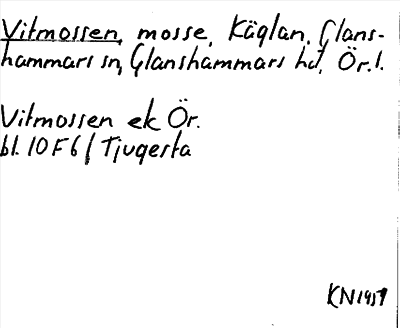 Vitmossen, mosse, Käglan, Glans-
hammars sn, Glanshammars hd, Ör. l.
Vitmossen ek Ör.
bl. 10 F 6 / Tjugesta
KN 1957